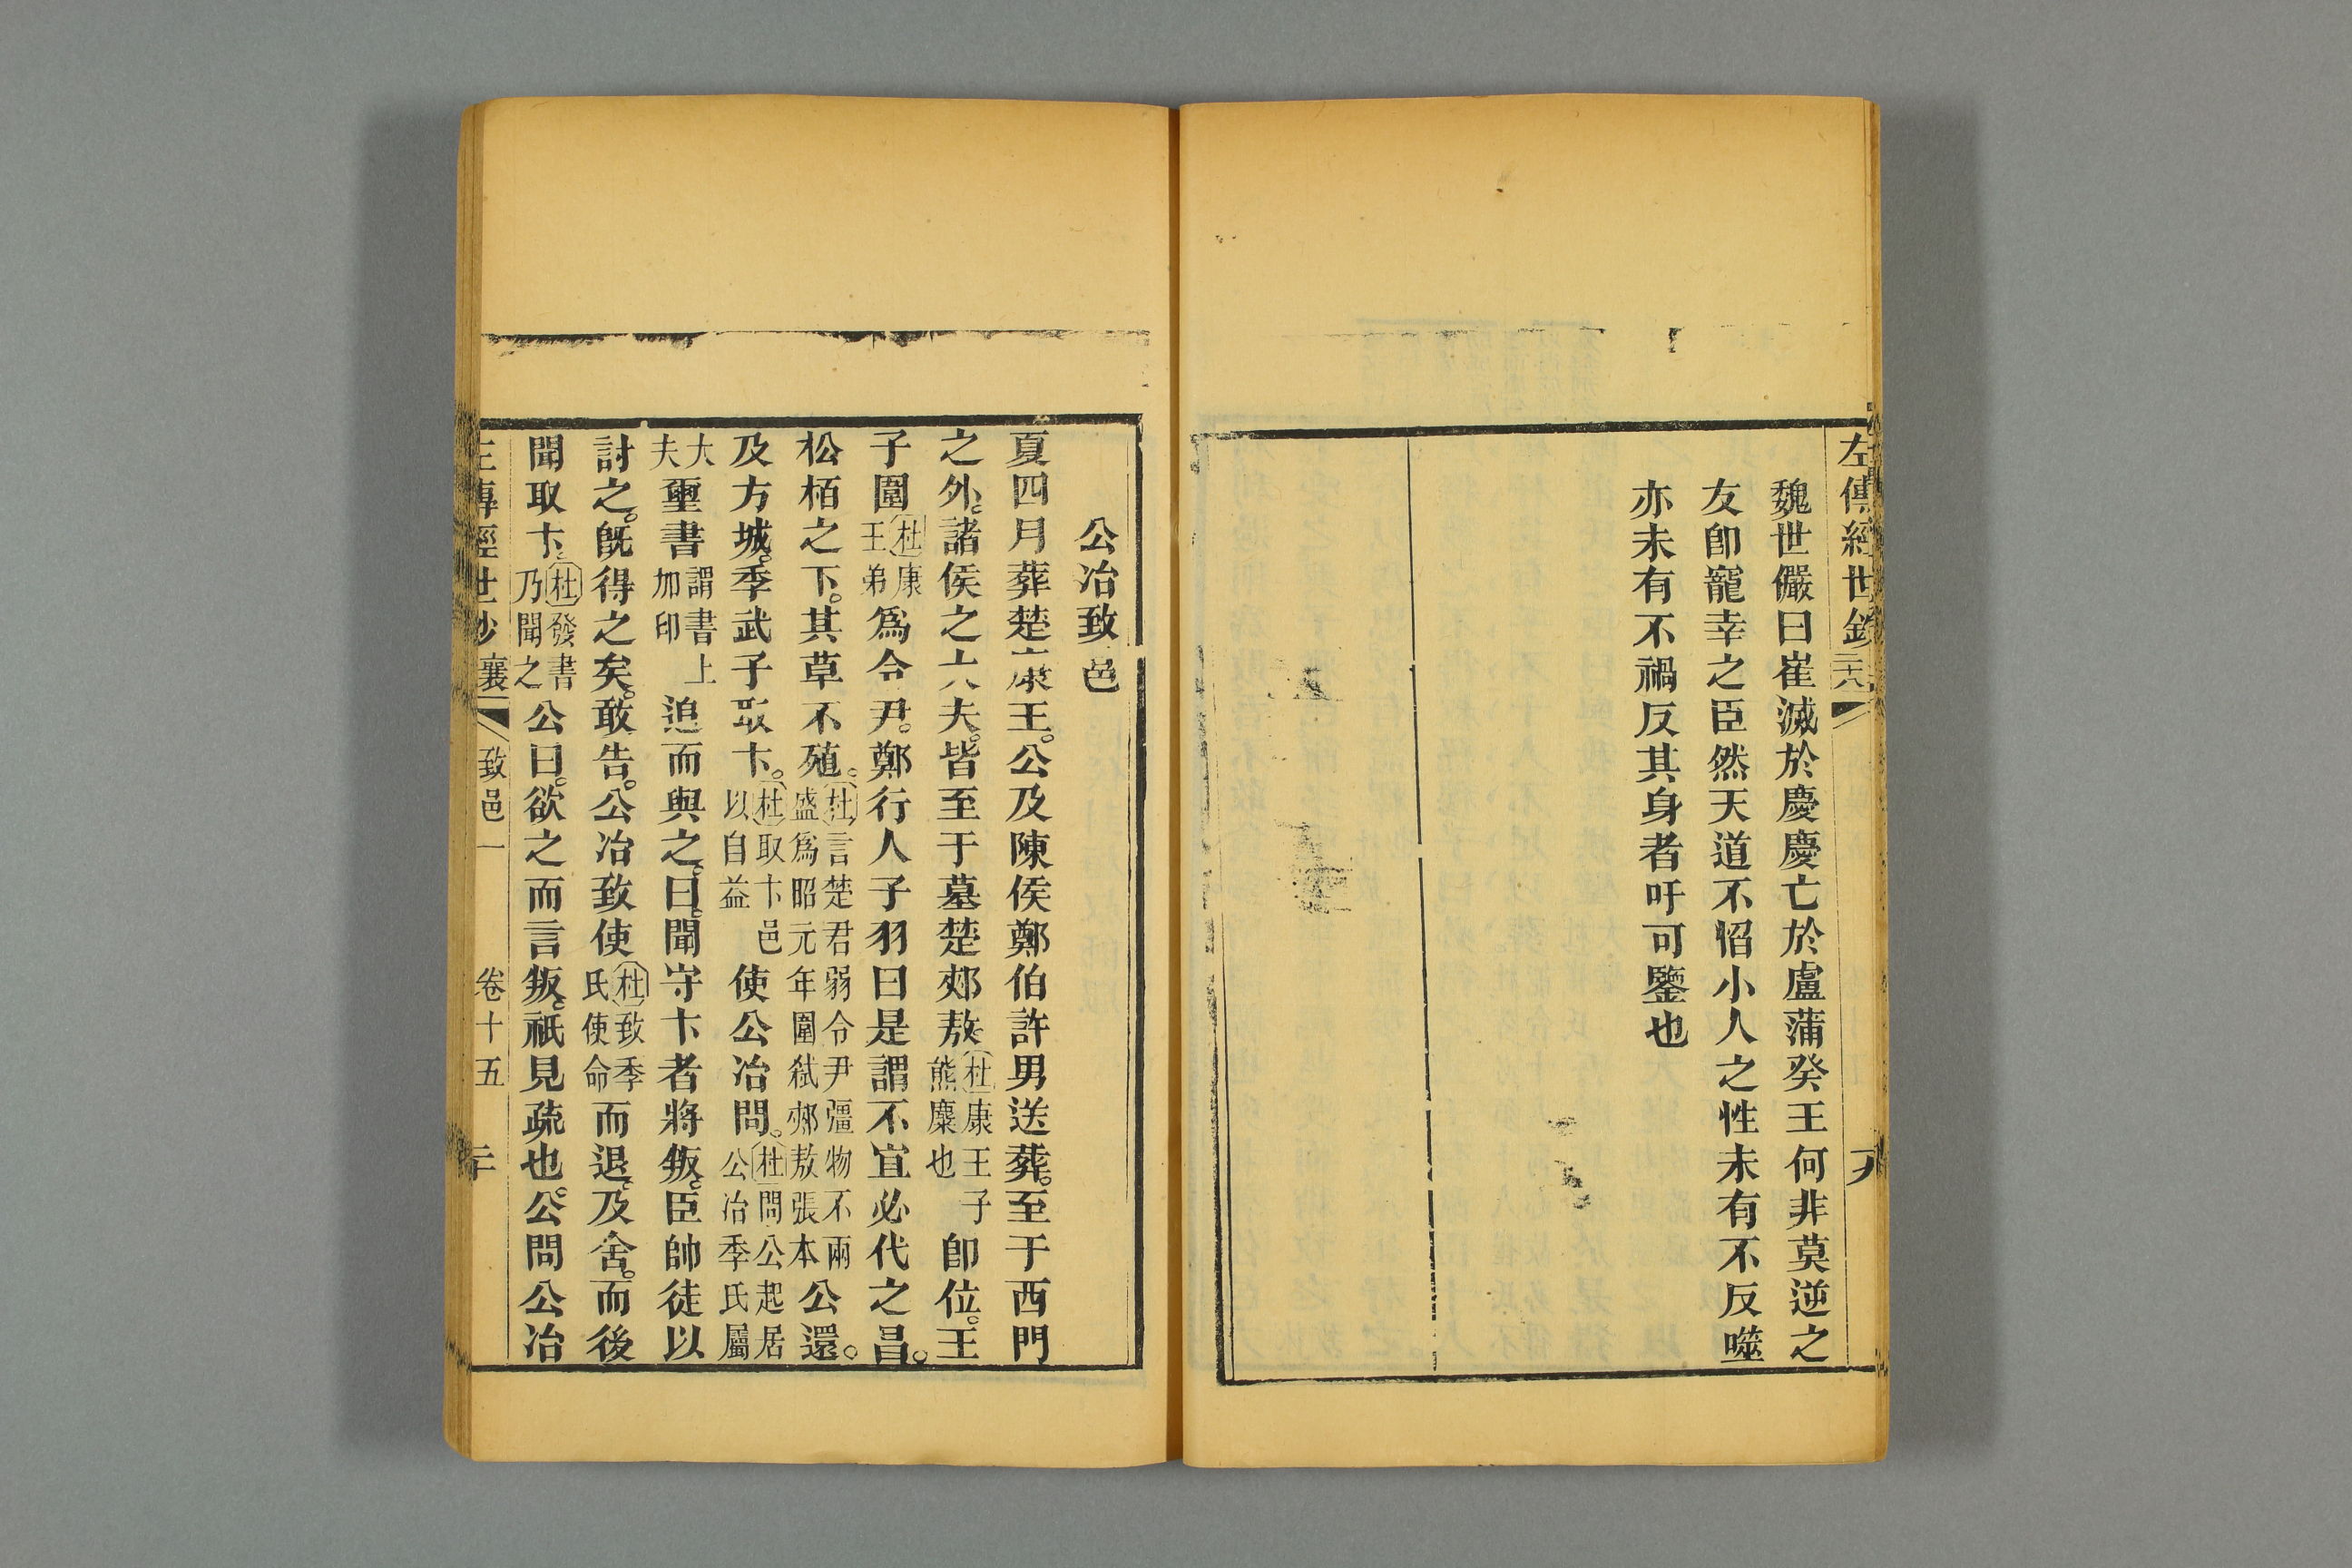 左傳經世鈔
魏世儼曰崔滅於慶慶亡於盧蒲癸王何非莫逆之
友卽寵幸之臣然天道不慆小人之性未有不反噬
亦未有不禍反其身者吁可鑒也
公冶致邑
夏四月葬楚康王。公及陳侯鄭伯許男送葬。至于西門
之外。諸侯之大夫。皆至于墓。楚郟敖。杜康王子熊麇也卽位。王
子圍杜康王弟爲令尹。鄭行人子羽曰是謂不宜必代之昌。
松栢之下。其草不殖。杜言楚君弱令尹彊物不兩盛爲昭元年圍弒郟敖張本公還。
及方城。季武子取卞。杜取卞邑以自益使公冶問。杜問公起居公冶季氏屬
大夫璽書謂書上加印追而與之。曰。聞守卞者將叛。臣帥徒以
討之。旣得之矣。敢告。公冶致使杜致季氏使命而退。及舍。而後
聞取卞。杜發書乃聞之公曰。欲之而言叛。祇見疏也。公問公冶
左傳經世鈔 襄 致邑一 卷十五